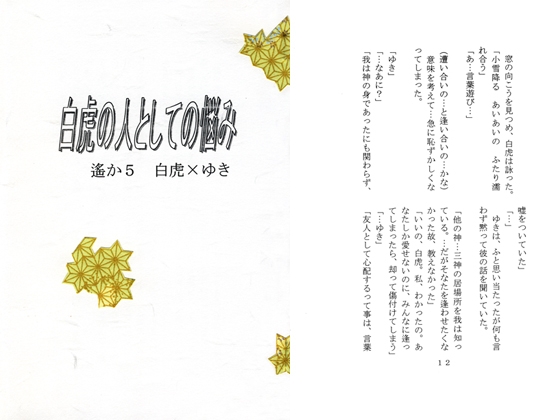 白虎の人としての悩み
遙か５　白虎×ゆき
窓の向こうを見つめ、白虎は詠った。
「小雪降る　あいあいの　ふたり濡
れ合う」
「あ…言葉遊び…」
(遭い合いの…と逢い合いの…かな)
意味を考えて…急に恥ずかしくな
ってしまった。
「ゆき」
「…なあに？」
「我は神の身であったにも関わらず、
嘘をついていた」
「…」
ゆきは、ふと思い当たったが何も言
わず黙って彼の話を聞いていた。
「他の神…三神の居場所を我は知っ
ている。…だがそなたを逢わせたくな
かった故、教えなかった」
「いいの、白虎。私、わかったの。あ
なたしか愛せないのに、みんなに逢っ
てしまったら、却って傷付けてしまう」
「…ゆき」
「友人として心配するって事は、言葉
１２